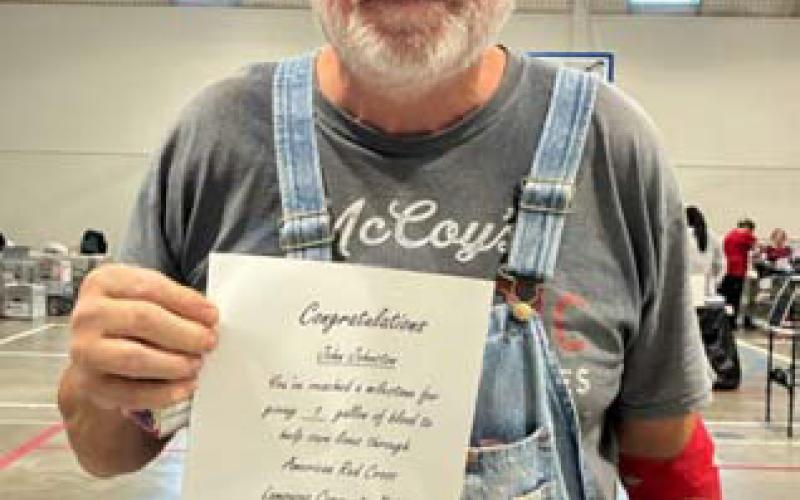 McCoy's
C
ES
Congratulations
John Johnston
You've reached a milestone for
giving 1 gallon of blood to
help save lives through
American Red Cross
Community